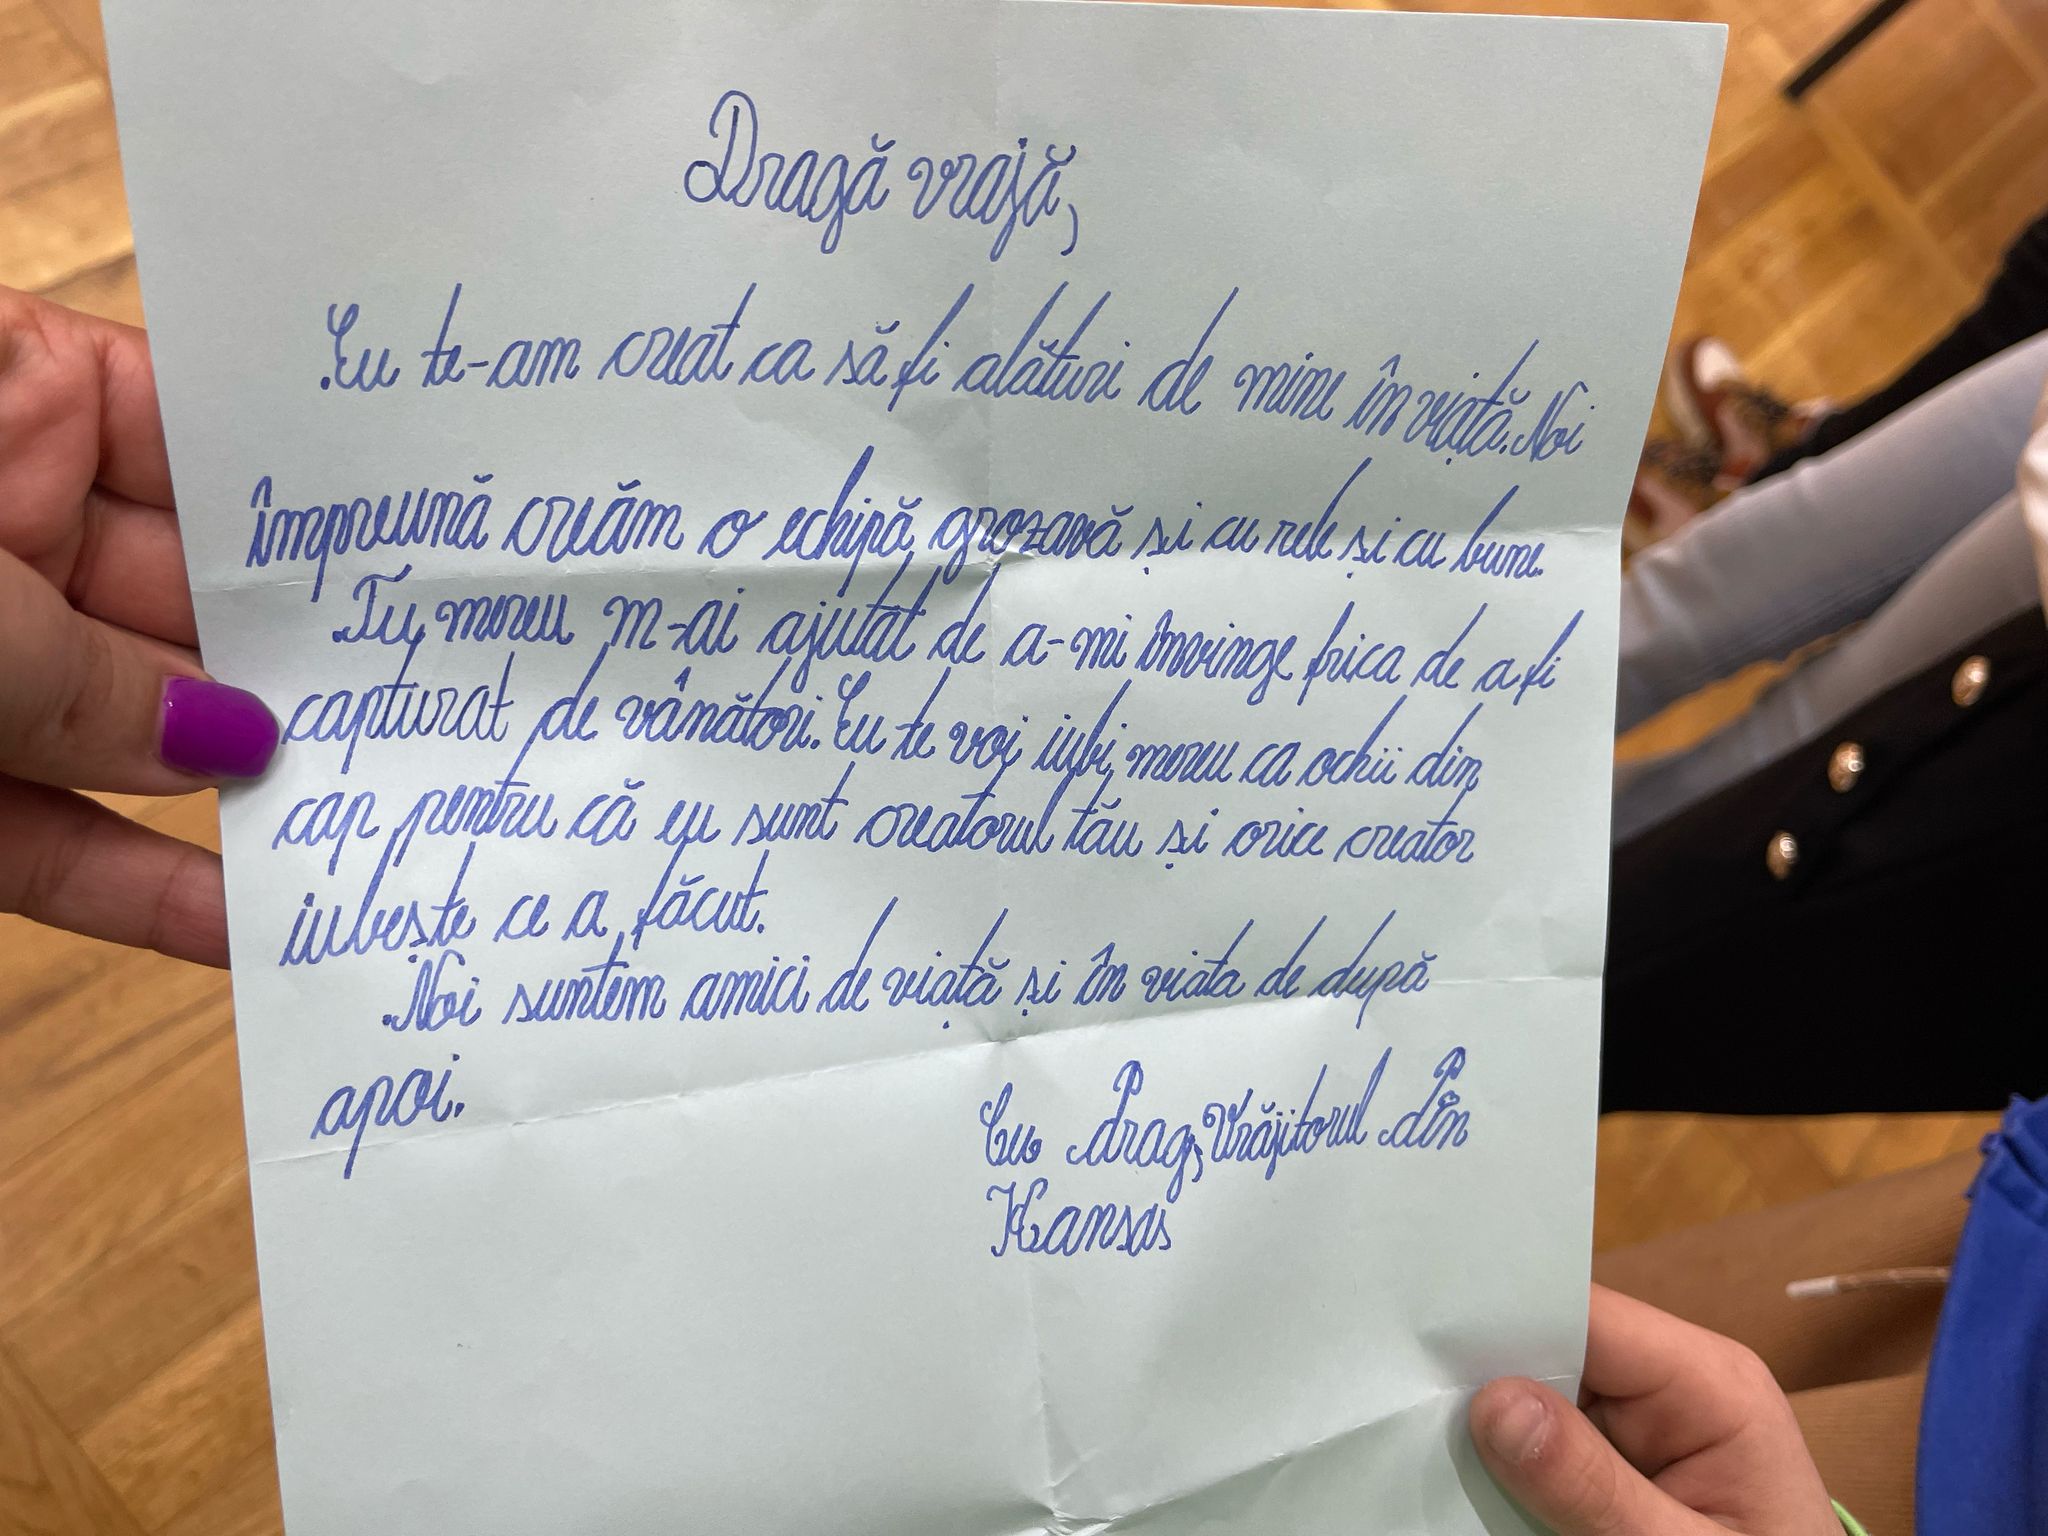 Dragă vrajă,
Eu te-am creat ca să fi alături de mine în viață. Noi
împreună creăm o echipă grozavă și cu rele și cu bune.
Tu mereu m-ai ajutat de a-mi învinge frica de a fi
capturat de vânători. Eu te voi iubi mereu ca ochii din
cap pentru că eu sunt creatorul tău și orice creator
iubește ce a făcut.
Noi suntem amici de viață și în viata de după
apoi.
Cu Drag, Vrăjitorul Din
Kansas